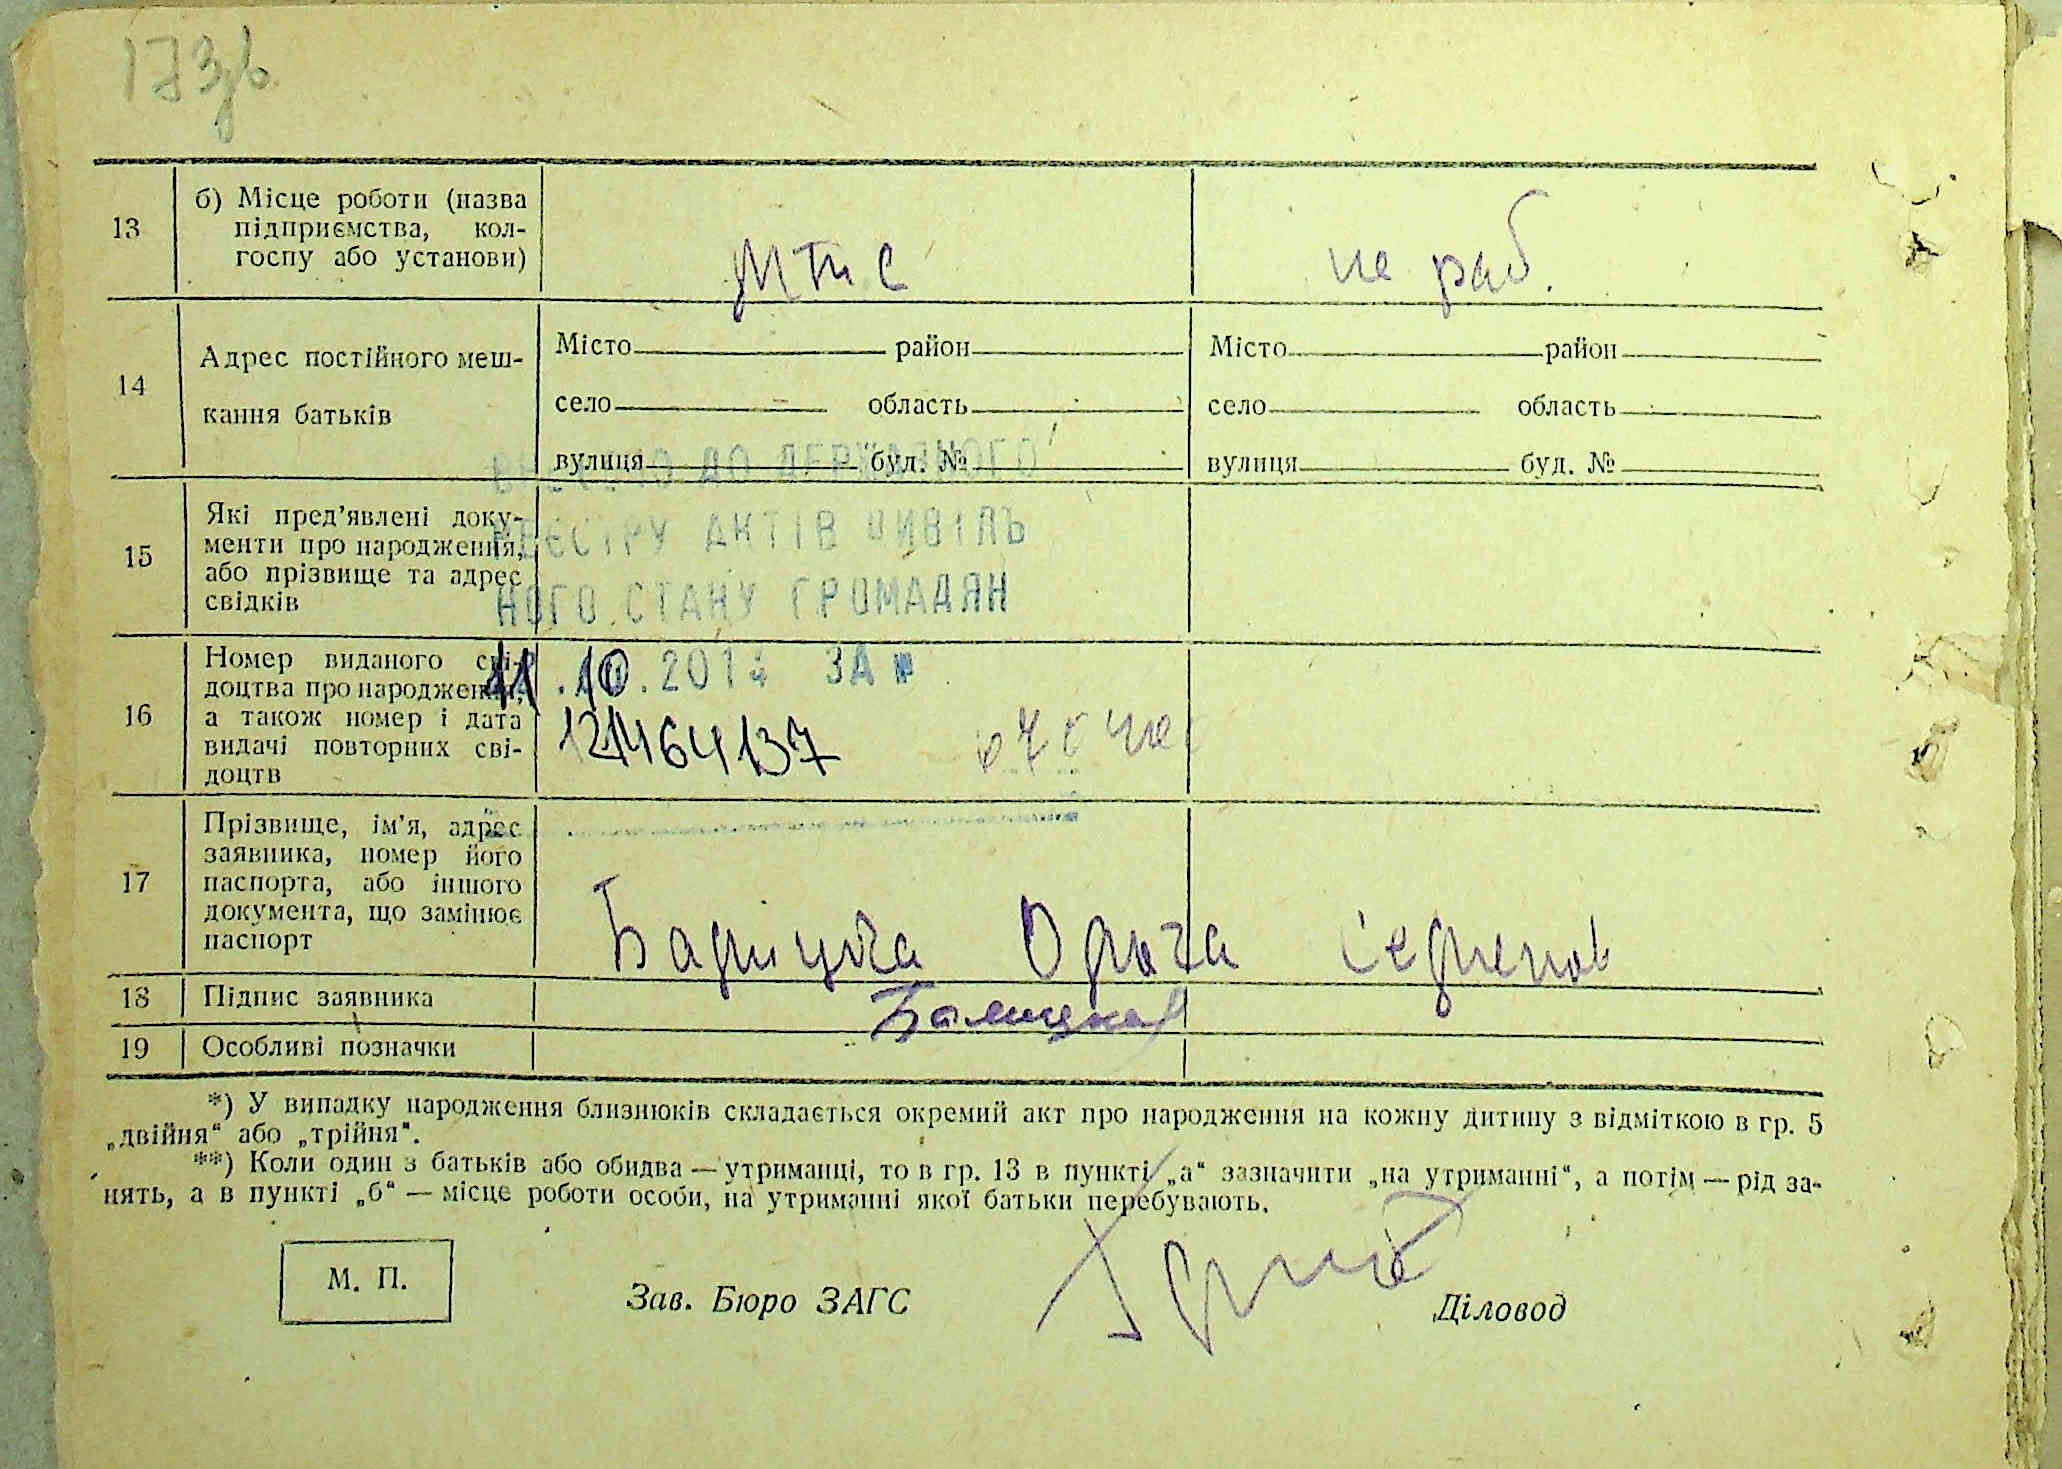 173зв
13
б) Місце роботи (назва
підприємства, кол-
госпу або установи)
МТС
не раб.
14
Адрес постійного меш-
кання батьків
Місто район
село область
вулиця буд. №
Місто район
село область
вулиця буд. №
ВНЕСЕНО ДО ДЕРЖАВНОГО
РЕЄСТРУ АКТІВ ЦИВІЛЬ
НОГО СТАНУ ГРОМАДЯН
15
Які пред'явлені доку-
менти про народження,
або прізвище та адрес
свідків
16
Номер виданого сві-
доцтва про народження,
а також номер і дата
видачі повторних сві-
доцтв
11.10.2014 ЗА №
121464137
17
Прізвище, ім'я, адрес
заявника, номер його
паспорта, або іншого
документа, що замінює
паспорт
18
Підпис заявника
19
Особливі позначки
*) У випадку народження близнюків складається окремий акт про народження на кожну дитину з відміткою в гр. 5
„двійня“ або „трійня“.
**) Коли один з батьків або обидва — утриманці, то в гр. 13 в пункті „а“ зазначити „на утриманні“, а потім — рід за-
нять, а в пункті „б“ — місце роботи особи, на утриманні якої батьки перебувають.
М. П.
Зав. Бюро ЗАГС
Діловод